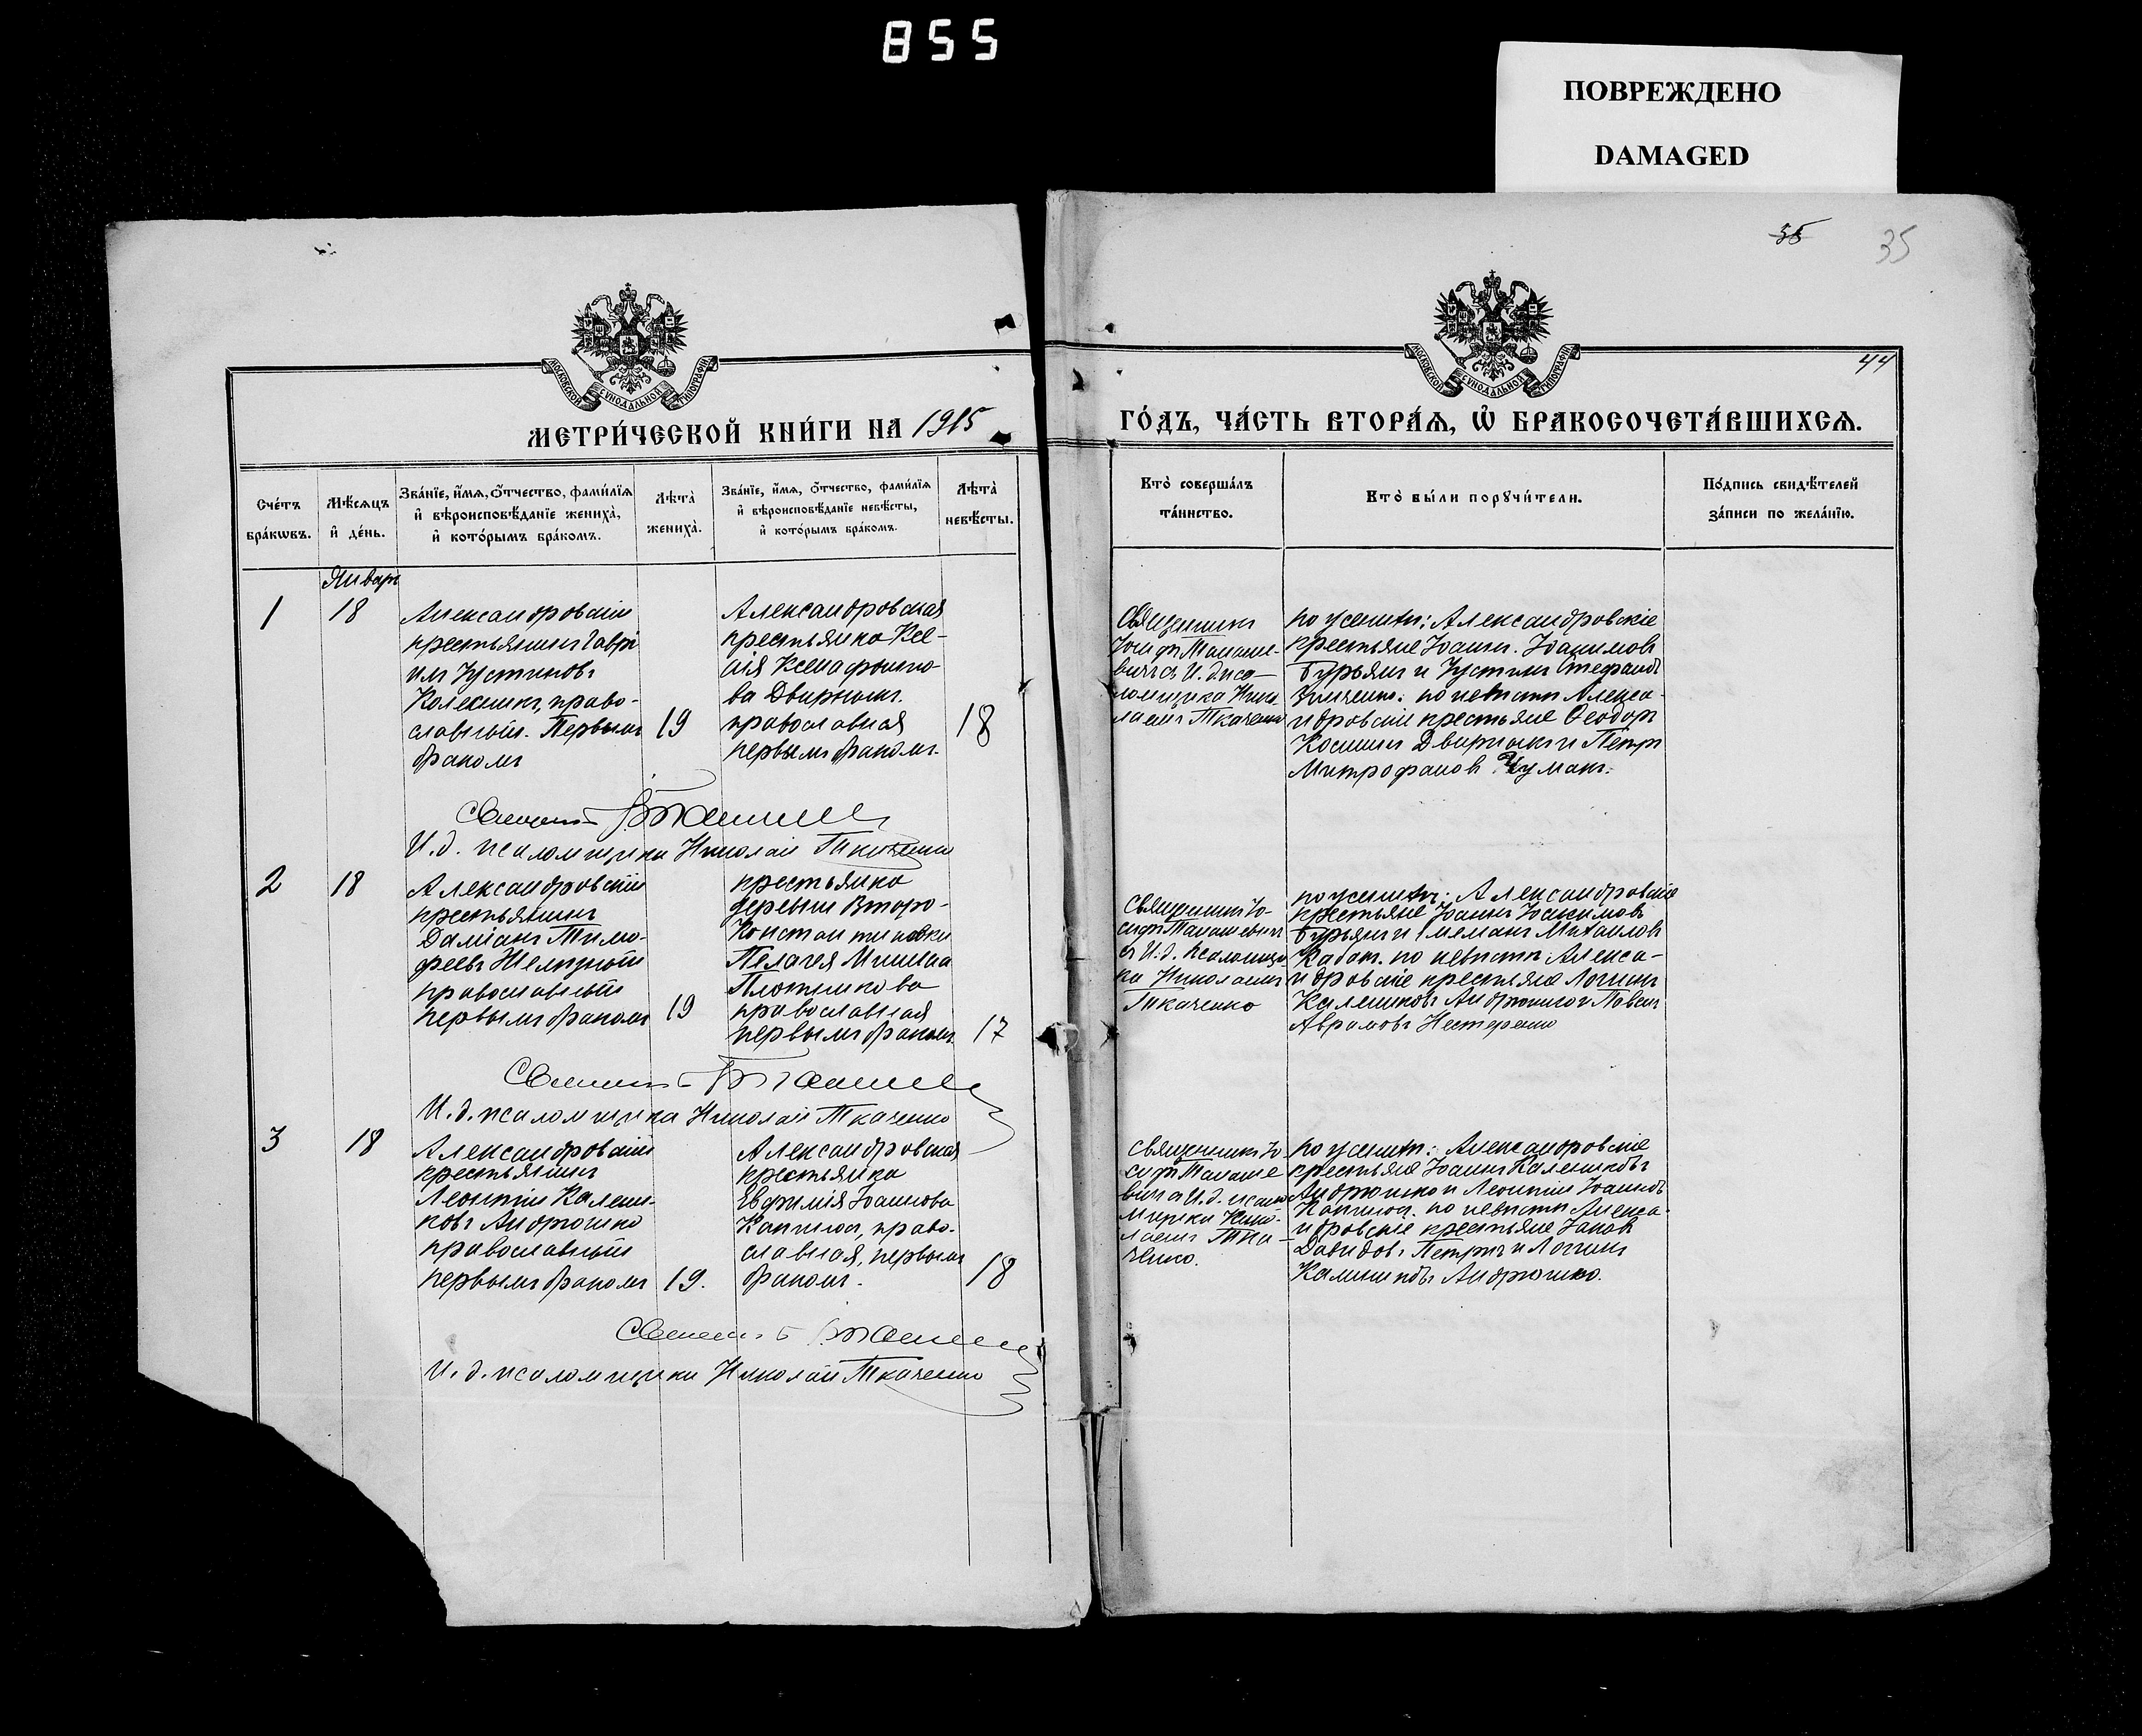 855
ПОВРЕЖДЕНО
DAMAGED
35
35
44
МОСКОВСКОЙ СУНОДАЛЬНОЙ ТИПОГРАФІИ
МОСКОВСКОЙ СУНОДАЛЬНОЙ ТИПОГРАФІИ
МЕТРИ́ЧЕСКОЙ КНИ́ГИ НА 1915
ГО́ДЪ, ЧА́СТЬ ВТОРА́Ѧ, Ѡ҆ БРАКОСОЧЕТА́ВШИХСѦ.
Сче́тъ бра́кѡвъ.
Мѣ́сѧцъ и҆ де́нь.
Зва́нїе, и҆́мѧ, ѻ҆́тчество, фами́лїѧ
и҆ вѣроисповѣ́данїе жениха̀,
и҆ кото́рымъ бра́комъ.
Лѣта̀ жениха̀.
Зва́нїе, и҆́мѧ, ѻ҆́тчество, фами́лїѧ
и҆ вѣроисповѣ́данїе невѣ́сты,
и҆ кото́рымъ бра́комъ.
Лѣта̀ невѣ́сты.
Кто̀ соверша́лъ
та́инство.
Кто̀ бы́ли порꙋчи́тели.
По́дпись свидѣ́телей
за́писи по жела́нїю.
Январь
1
18
Александровскій
крестьянинъ Гаврі
илъ Іустиновъ
Колесникъ, право-
славный. Первымъ
бракомъ
19
Александровская
крестьянка Ксе-
нія Ксенофонто
ва Дворникъ.
православная
первымъ бракомъ.
18
Священникъ
Іосифъ Танаше-
вичъ с И. д. пса-
ломщика Нико
лаемъ Ткаченко
по женихѣ: Александровскіе
крестьяне Іоаннъ Іоакимовъ
Бурьянъ и Іустинъ Стефановъ
Зинченко: по невѣстѣ Алекса-
ндровскіе крестьяне Ѳеодоръ
Косминъ Дворникъ и Петръ
Митрофановъ Чумакъ.
Священ. І. Танашевичъ
И. д. псаломщика Николай Ткаченко
2
18
Александровскій
крестьянинъ
Даміанъ Тимо-
феевъ Желѣзный
православный
первымъ бракомъ
19
крестьянка
деревни Второ-
Константиновки
Пелагея
Плотникова
православная
первымъ бракомъ
17
Священникъ Іо-
сифъ Танашевичъ
с И. д. псаломщи
ка Николаемъ
Ткаченко
по женихѣ: Александровскіе
крестьяне Іоаннъ Іоакимовъ
Бурьянъ и Михаиловъ
по невѣстѣ Алекса-
ндровскіе крестьяне Логинъ
Калениковъ Андрюшко и Павелъ
Аврамовъ Нестеренко
Священ. І. Танашевичъ
И. д. псаломщика Николай Ткаченко
3
18
Александровскій
крестьянинъ
Леонтій Калени-
ковъ Андрюшко
православный
первымъ бракомъ
19.
Александровская
крестьянка
Евфимія Іоаннова
Капинос, право-
славная, первымъ
бракомъ.
18
Священникъ Іо-
сифъ Танаше
вичъ с И. д. псало
мщика Нико-
лаемъ Тка-
ченко.
по женихѣ: Александровскіе
крестьяне Іоаннъ Калениковъ
Андрюшко и Леонтій Іоанновъ
Капинос. по невѣстѣ Алекса-
ндровскіе крестьяне Іаковъ
Давидовъ Петричъ и Логинъ
Калениковъ Андрюшко.
Священ. І. Танашевичъ
И. д. псаломщика Николай Ткаченко